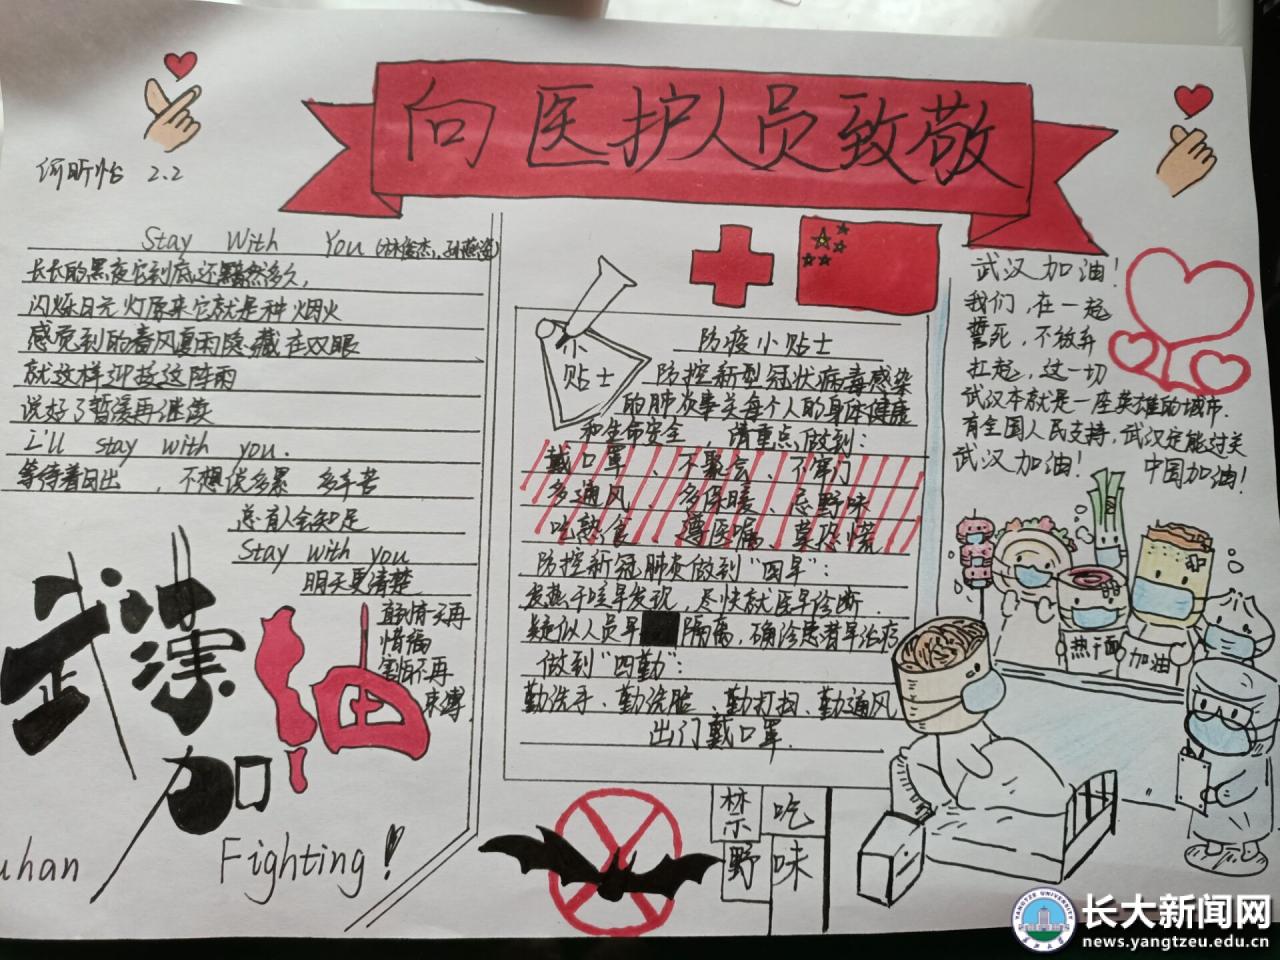 向医护人员致敬
何昕怡 2.2
Stay With You (林俊杰, 孙燕姿)
长长的黑夜它到底还黯然多久,
闪烁日光灯原来它就是种烟火
感觉到的春风夏雨隐藏在双眼
就这样迎接这阵雨
说好了暂缓再继续
I'll stay with you.
等待着日出 , 不想说多累 多辛苦
总有人会知足
Stay with you
明天更清楚
颜情天再
惜福
害怕不再
束缚.
武漢
加油
uhan Fighting!
小
贴士
防疫小贴士
防控新型冠状病毒感染
的肺炎事关每个人的身体健康
和生命安全 , 请重点做到:
戴口罩 、不聚会、不串门
多通风 、多保暖、忌野味
吃熟食 、遵医嘱、莫恐慌
防控新冠肺炎做到"四早":
发热干咳早发现, 尽快就医早诊断.
疑似人员早 隔离, 确诊患者早治疗
做到"四勤":
勤洗手、勤洗脸 、勤打扫、勤通风
出门戴口罩.
禁吃
野味
武汉加油!
我们, 在一起
誓死, 不放弃
扛起, 这一切
武汉本就是一座英雄的城市.
有全国人民支持, 武汉定能过关
武汉加油! 中国加油!
热干面
加油
YANGTZE UNIVERSITY
长大新闻网
news.yangtzeu.edu.cn